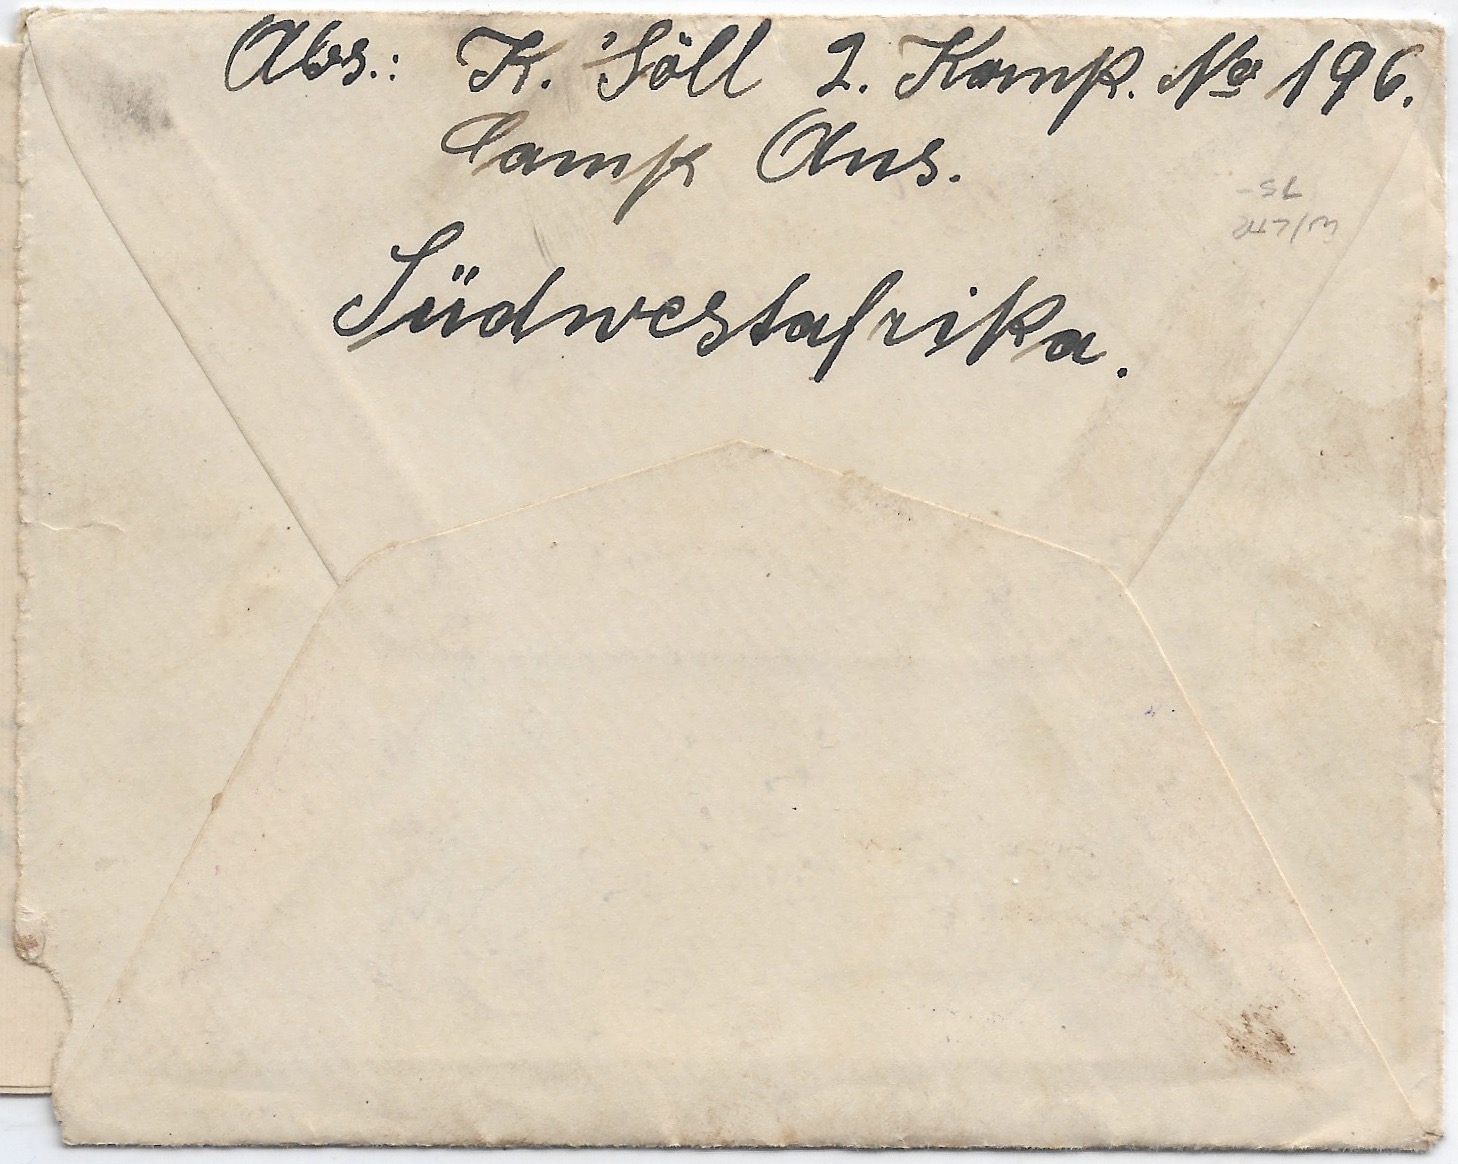 Abs.: K. Söll 2. Komp. No 196.
Camp Aus.
Südwestafrika.